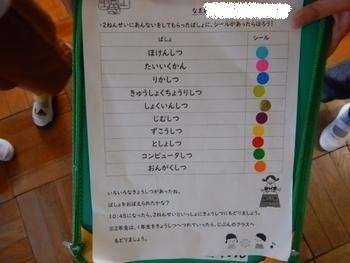 なま
・2ねんせいにあんないをしてもらったばしょに、シールがあったらはろう!
ばしょ シール
ほけんしつ
たいいくかん
りかしつ
きゅうしょくちょうりしつ
しょくいんしつ
じむしつ
ずこうしつ
としょしつ
コンピュータしつ
おんがくしつ
いろいろなきょうしつがあったね。
ばしょをおぼえられたかな?
10:45になったら、2ねんせいといっしょにきょうしつにもどりましょう。
※2年生は、1年生をきょうしつへつれていったら、じぶんのクラスへ
もどりましょう。